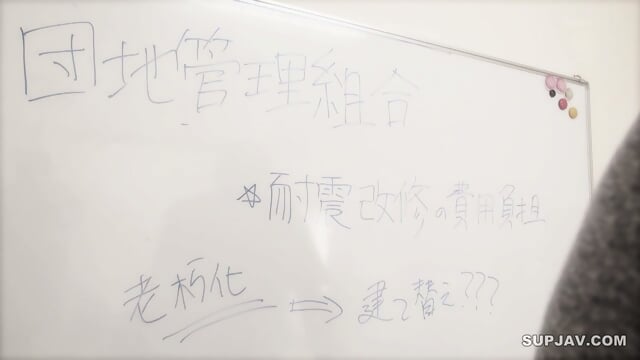 団地管理組合
☆耐震改修の費用負担
老朽化 ⇒ 建て替え???
SUPJAV.COM